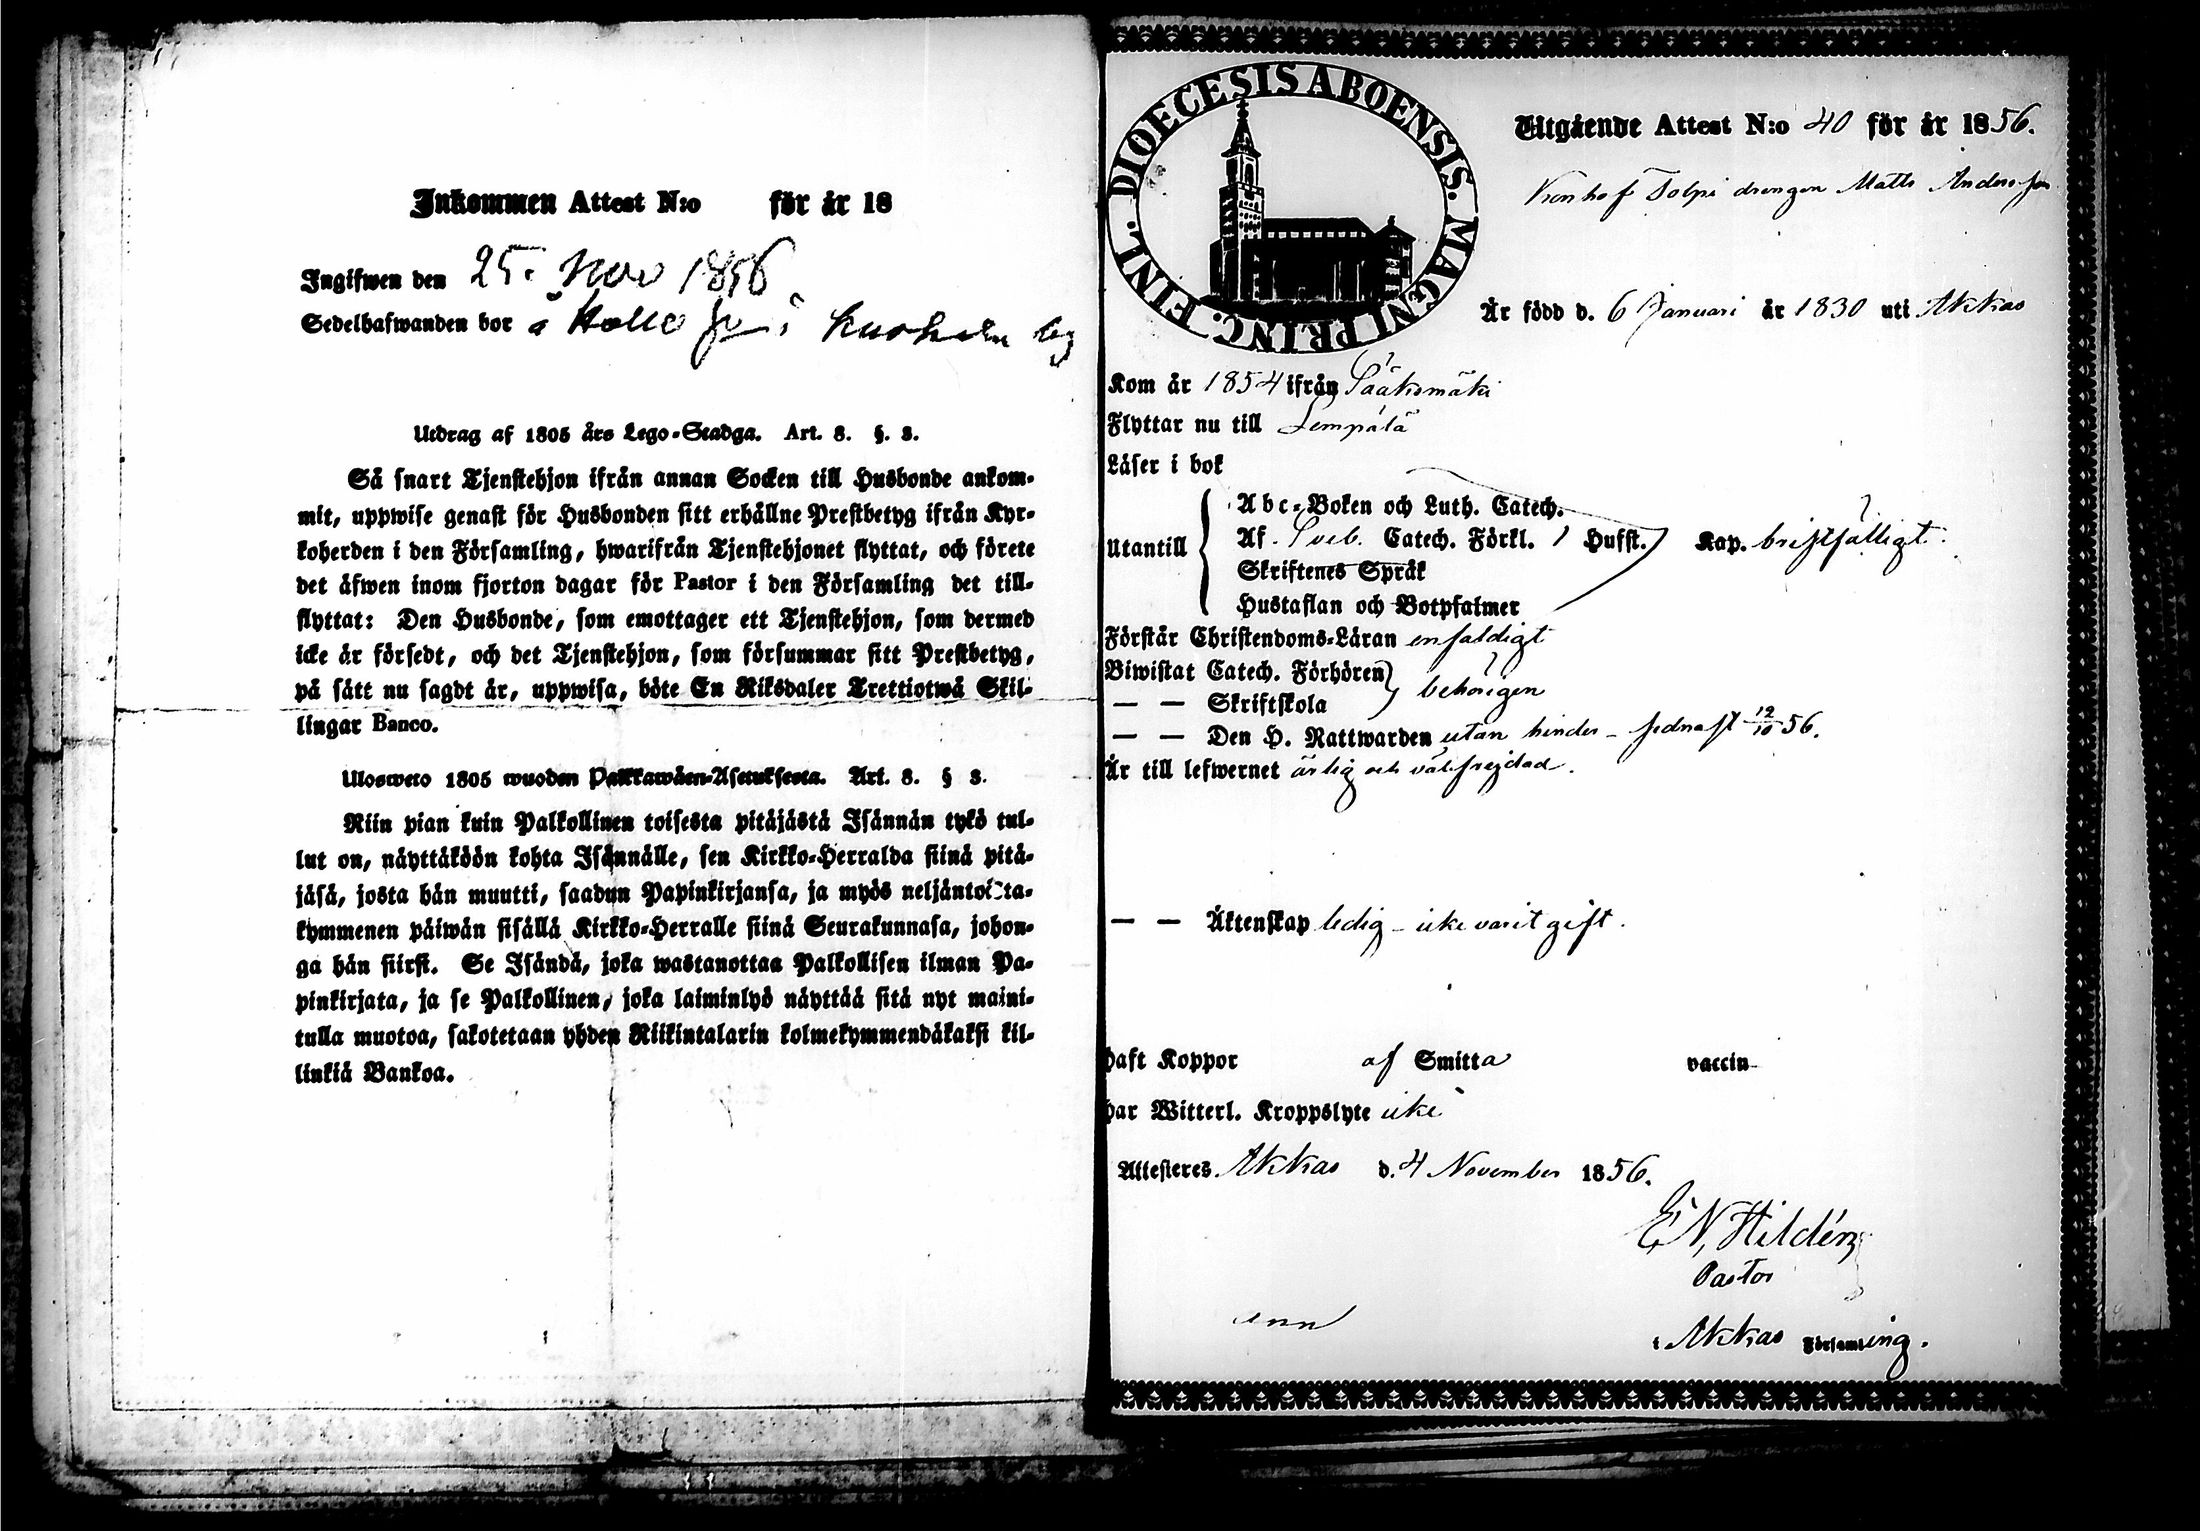 Inkommen Attest N:o för år 18
Ingifwen den 25. Nov 1856
Sedelhafwanden bor å i by
Utdrag af 1805 års Lego-Stadga. Art. 8. §. 3.
Så snart Tjenstehjon ifrån annan Socken till Husbonde ankom-
mit, uppwise genast för Husbonden sitt erhållne Prestbetyg ifrån Kyr-
koherden i den Församling, hwarifrån Tjenstehjonet flyttat, och förete
det äfwen inom fjorton dagar för Pastor i den Församling det till-
flyttat: Den Husbonde, som emottager ett Tjenstehjon, som dermed
icke är försedt, och det Tjenstehjon, som försummar sitt Prestbetyg,
på sätt nu sagdt är, uppwisa, böte En Riksdaler Trettiotwå Skil-
lingar Banco.
Ulosweto 1805 wuoden Palkkawäen-Asetuksesta. Art. 8. § 3.
Niin pian kuin Palkollinen toisesta pitäjästä Isännän tykö tul-
lut on, näyttäköön kohta Isännälle, sen Kirkko-Herralda siinä pitä-
jäsä, josta hän muutti, saadun Papinkirjansa, ja myös neljäntoista-
kymmenen päiwän sisällä Kirkko-Herralle siinä Seurakunnasa, johon-
ga hän siirsi. Se Isändä, joka wastanottaa Palkollisen ilman Pa-
pinkirjata, ja se Palkollinen, joka laiminlyö näyttää sitä nyt maini-
tulla muotoa, sakotetaan yhden Riikintalarin kolmekymmendäkaksi kil-
linkiä Bankoa.
DIOECESIS ABOENSIS. MAGNI PRINC. FINL.
Utgående Attest N:o 40 för år 1856.
Tolpi drengen Matts Andersson
Är född d. 6 Januari år 1830 uti Akkas
Kom år 1854 ifrån Sääksmäki
Flyttar nu till Lempälä
Läser i bok
Utantill
Abc-Boken och Luth. Catech.
Af Sveb. Catech. Förkl. 1 Hufst. Kap. bristfälligt.
Skriftenes Språk
Hustaflan och Botpsalmer
Förstår Christendoms-Läran enfaldigt
Biwistat Catech. Förhören
behörigen
— — Skriftskola
— — Den H. Nattwarden utan hinder - sednast 12/10 56.
Är till lefwernet ärlig och välfrejdad.
— — Äktenskap ledig - icke varit gift.
haft Koppor af Smitta vaccin
har Witterl. Kroppslyte icke
Attesteres Akkas d. 4 November 1856.
E N, Hildén
Pastor
i Akkas Församling.